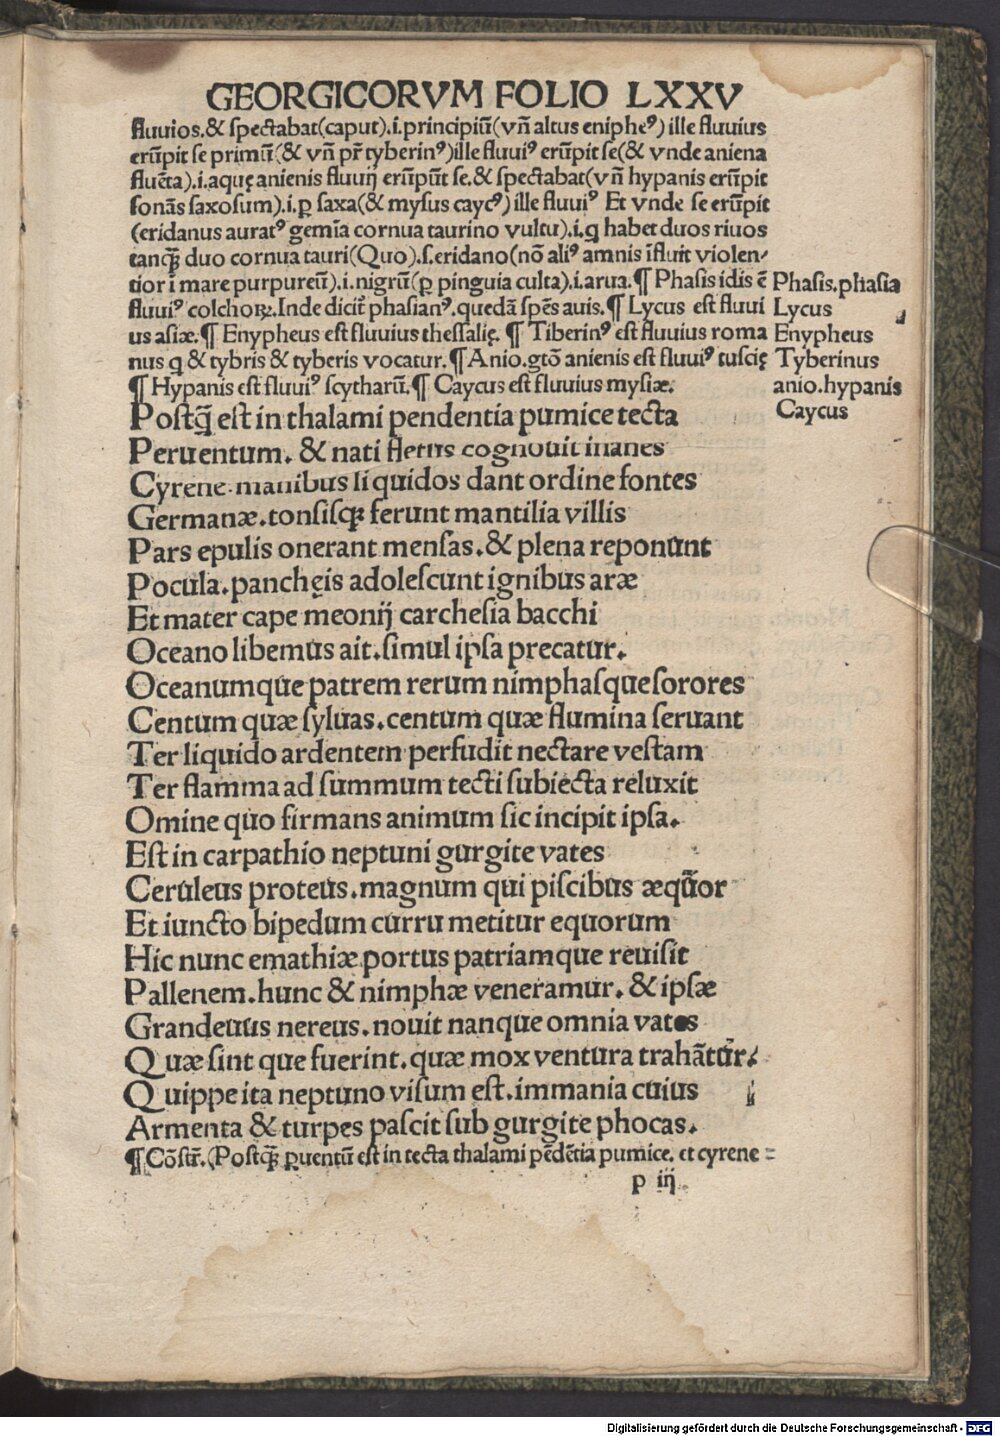 GEORGICORVM FOLIO LXXV
fluuios.& spectabat(caput).i.principiū(vñ altus enipheꝰ) ille fluuius
erūpit se primū(& vñ pr̄ tyberinꝰ)ille fluuiꝰ erūpit se(& vnde aniena
fluēta).i.aquę anienis fluuij erūpūt se.& spectabat(vñ hypanis erūpit
sonās saxosum).i.ꝑ saxa(& mysus caycꝰ) ille fluuiꝰ Et vnde se erūpit
(eridanus auratꝰ gemīa cornua taurino vultu).i.q habet duos riuos
tanqꝫ duo cornua tauri(Quo).s.eridano(nō aliꝰ amnis īfluit violen-
tior ī mare purpureū).i.nigrū(ꝑ pinguia culta).i.arua.¶ Phasis idis ē
fluuiꝰ colchoꝝ.Inde dicit̄ phasianꝰ.quedā spēs auis.¶ Lycus est fluui
us asiæ.¶ Enypheus est fluuius thessalię. ¶ Tiberinꝰ est fluuius roma
nus q & tybris & tyberis vocatur.¶ Anio.gtō anienis est fluuiꝰ tuscię
¶ Hypanis est fluuiꝰ scytharū.¶ Caycus est fluuius mysiæ.
Phasis.phasia
Lycus
Enypheus
Tyberinus
anio.hypanis
Caycus
Postq̄ est in thalami pendentia pumice tecta
Peruentum. & nati fletus cognouit inanes
Cyrene.manibus liquidos dant ordine fontes
Germanæ.tonsisqꝫ ferunt mantilia villis
Pars epulis onerant mensas.& plena reponunt
Pocula.panchęis adolescunt ignibus aræ
Et mater cape meonij carchesia bacchi
Oceano libemus ait.simul ipsa precatur.
Oceanumque patrem rerum nimphasque sorores
Centum quæ syluas.centum quæ flumina seruant
Ter liquido ardentem perfudit nectare vestam
Ter flamma ad summum tecti subiecta reluxit
Omine quo firmans animum sic incipit ipsa.
Est in carpathio neptuni gurgite vates
Ceruleus proteus.magnum qui piscibus æquor
Et iuncto bipedum curru metitur equorum
Hic nunc emathiæ portus patriamque reuisit
Pallenem.hunc & nimphæ veneramur. & ipsæ
Grandeuus nereus.nouit nanque omnia vates
Quæ sint que fuerint.quæ mox ventura trahātur.
Quippe ita neptuno visum est.immania cuius
Armenta & turpes pascit sub gurgite phocas.
¶ Cōstr̄.(Postqꝫ ꝑuentū est in tecta thalami pēdētia pumice. et cyrene =
p iij
Digitalisierung gefördert durch die Deutsche Forschungsgemeinschaft - DFG